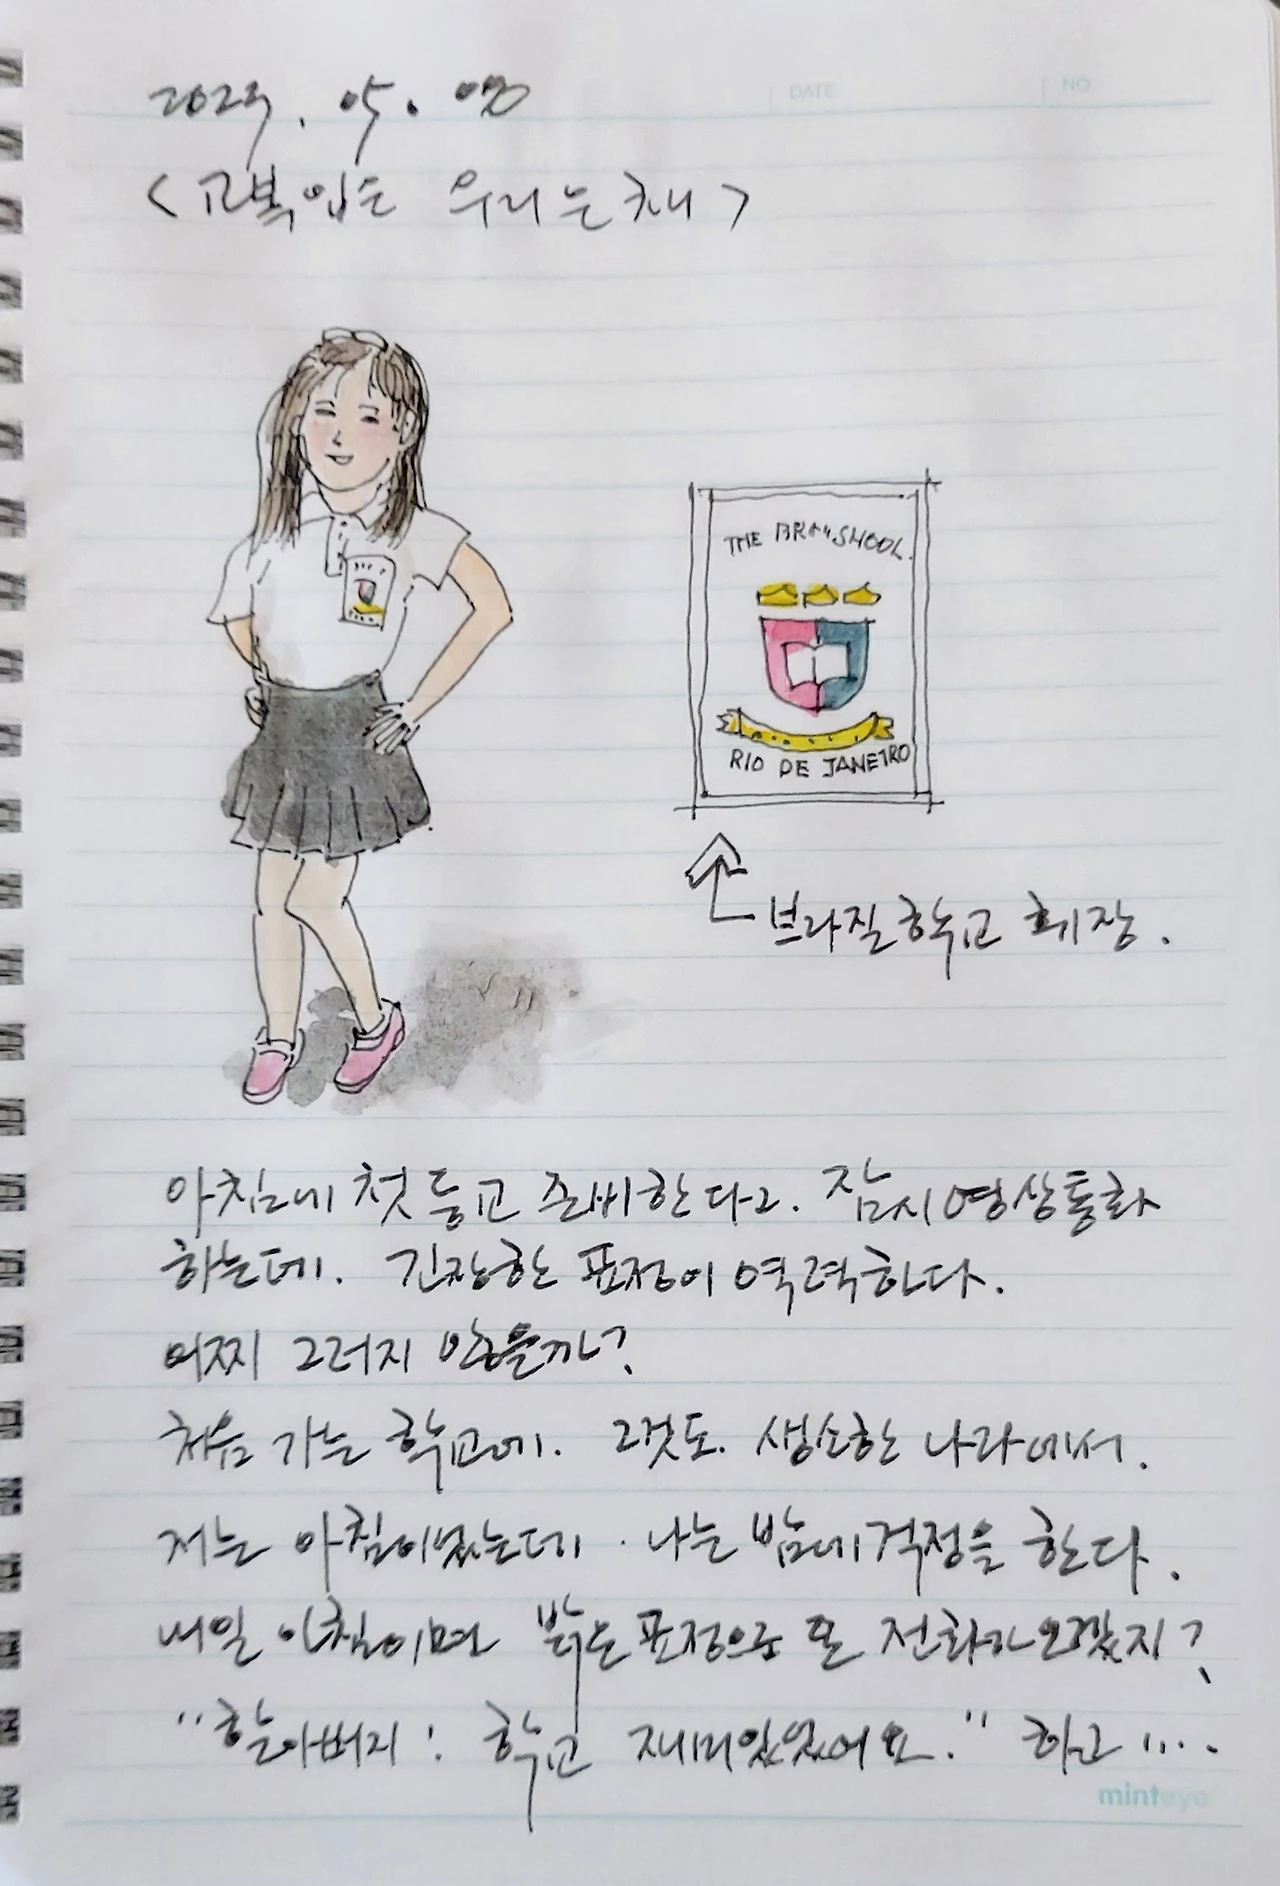 2023. 05. 03
DATE
NO
<교복입은 우리 은채>
THE BRITISH SHOOL.
RIO DE JANEIRO
브라질학교 휘장.
아침에 첫 등교 준비한다고. 잠시 영상통화
하는데. 긴장한 표정이 역력하다.
어찌 그러지 않을까?
처음 가는 학교에. 그것도. 생소한 나라에서.
저는 아침이었는데. 나는 밤에 걱정을 한다.
내일 아침이면 밝은 표정으로 또 전화가 오겠지?
"할아버지! 학교 재미있었어요." 하고....
minteye